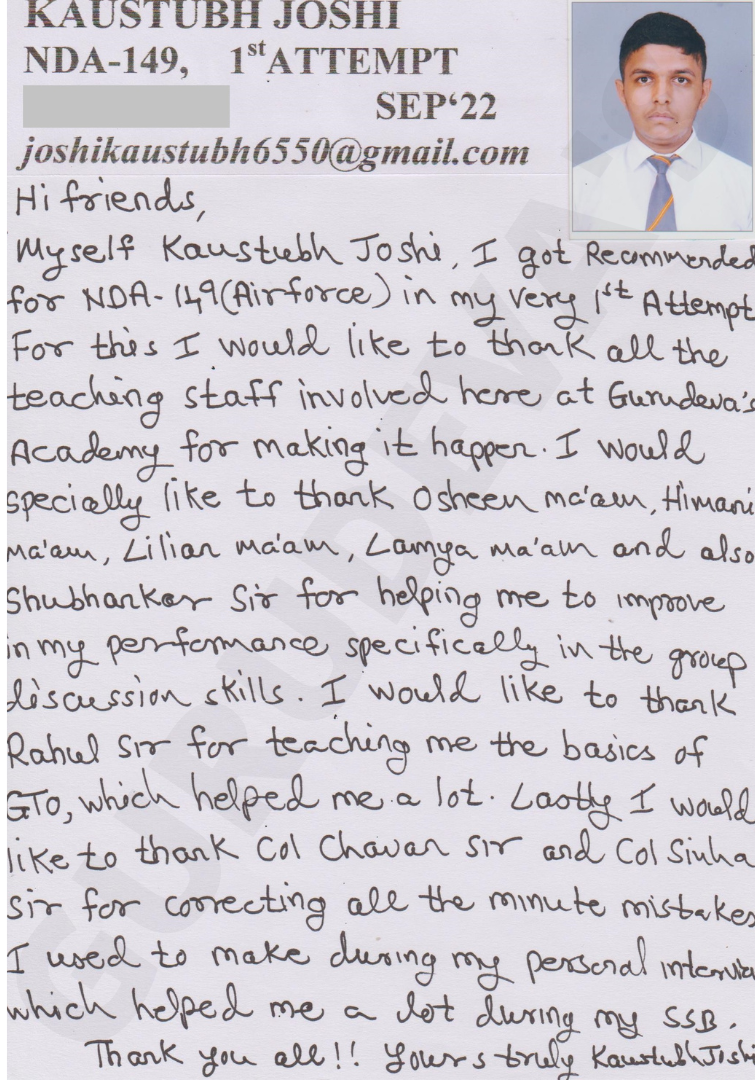 KAUSTUBH JOSHI
NDA-149, 1st ATTEMPT
SEP'22
joshikaustubh6550@gmail.com
Hi friends,
Myself Kaustubh Joshi, I got Recommended
for NDA-149(Airforce) in my very 1st Attempt
For this I would like to thank all the
teaching staff involved here at Gurudeva's
Academy for making it happen. I would
specially like to thank Osheen ma'am, Himani
ma'am, Lilian ma'am, Lamya ma'am and also
Shubhankar Sir for helping me to improve
in my performance specifically in the group
discussion skills. I would like to thank
Rahul Sir for teaching me the basics of
GTO, which helped me a lot. Lastly I would
like to thank Col Chavan sir and Col Sinha
Sir for correcting all the minute mistakes
I used to make during my personal interview
which helped me a lot during my SSB.
Thank you all!! Yours truly Kaustubh Joshi
GURUDEVA'S